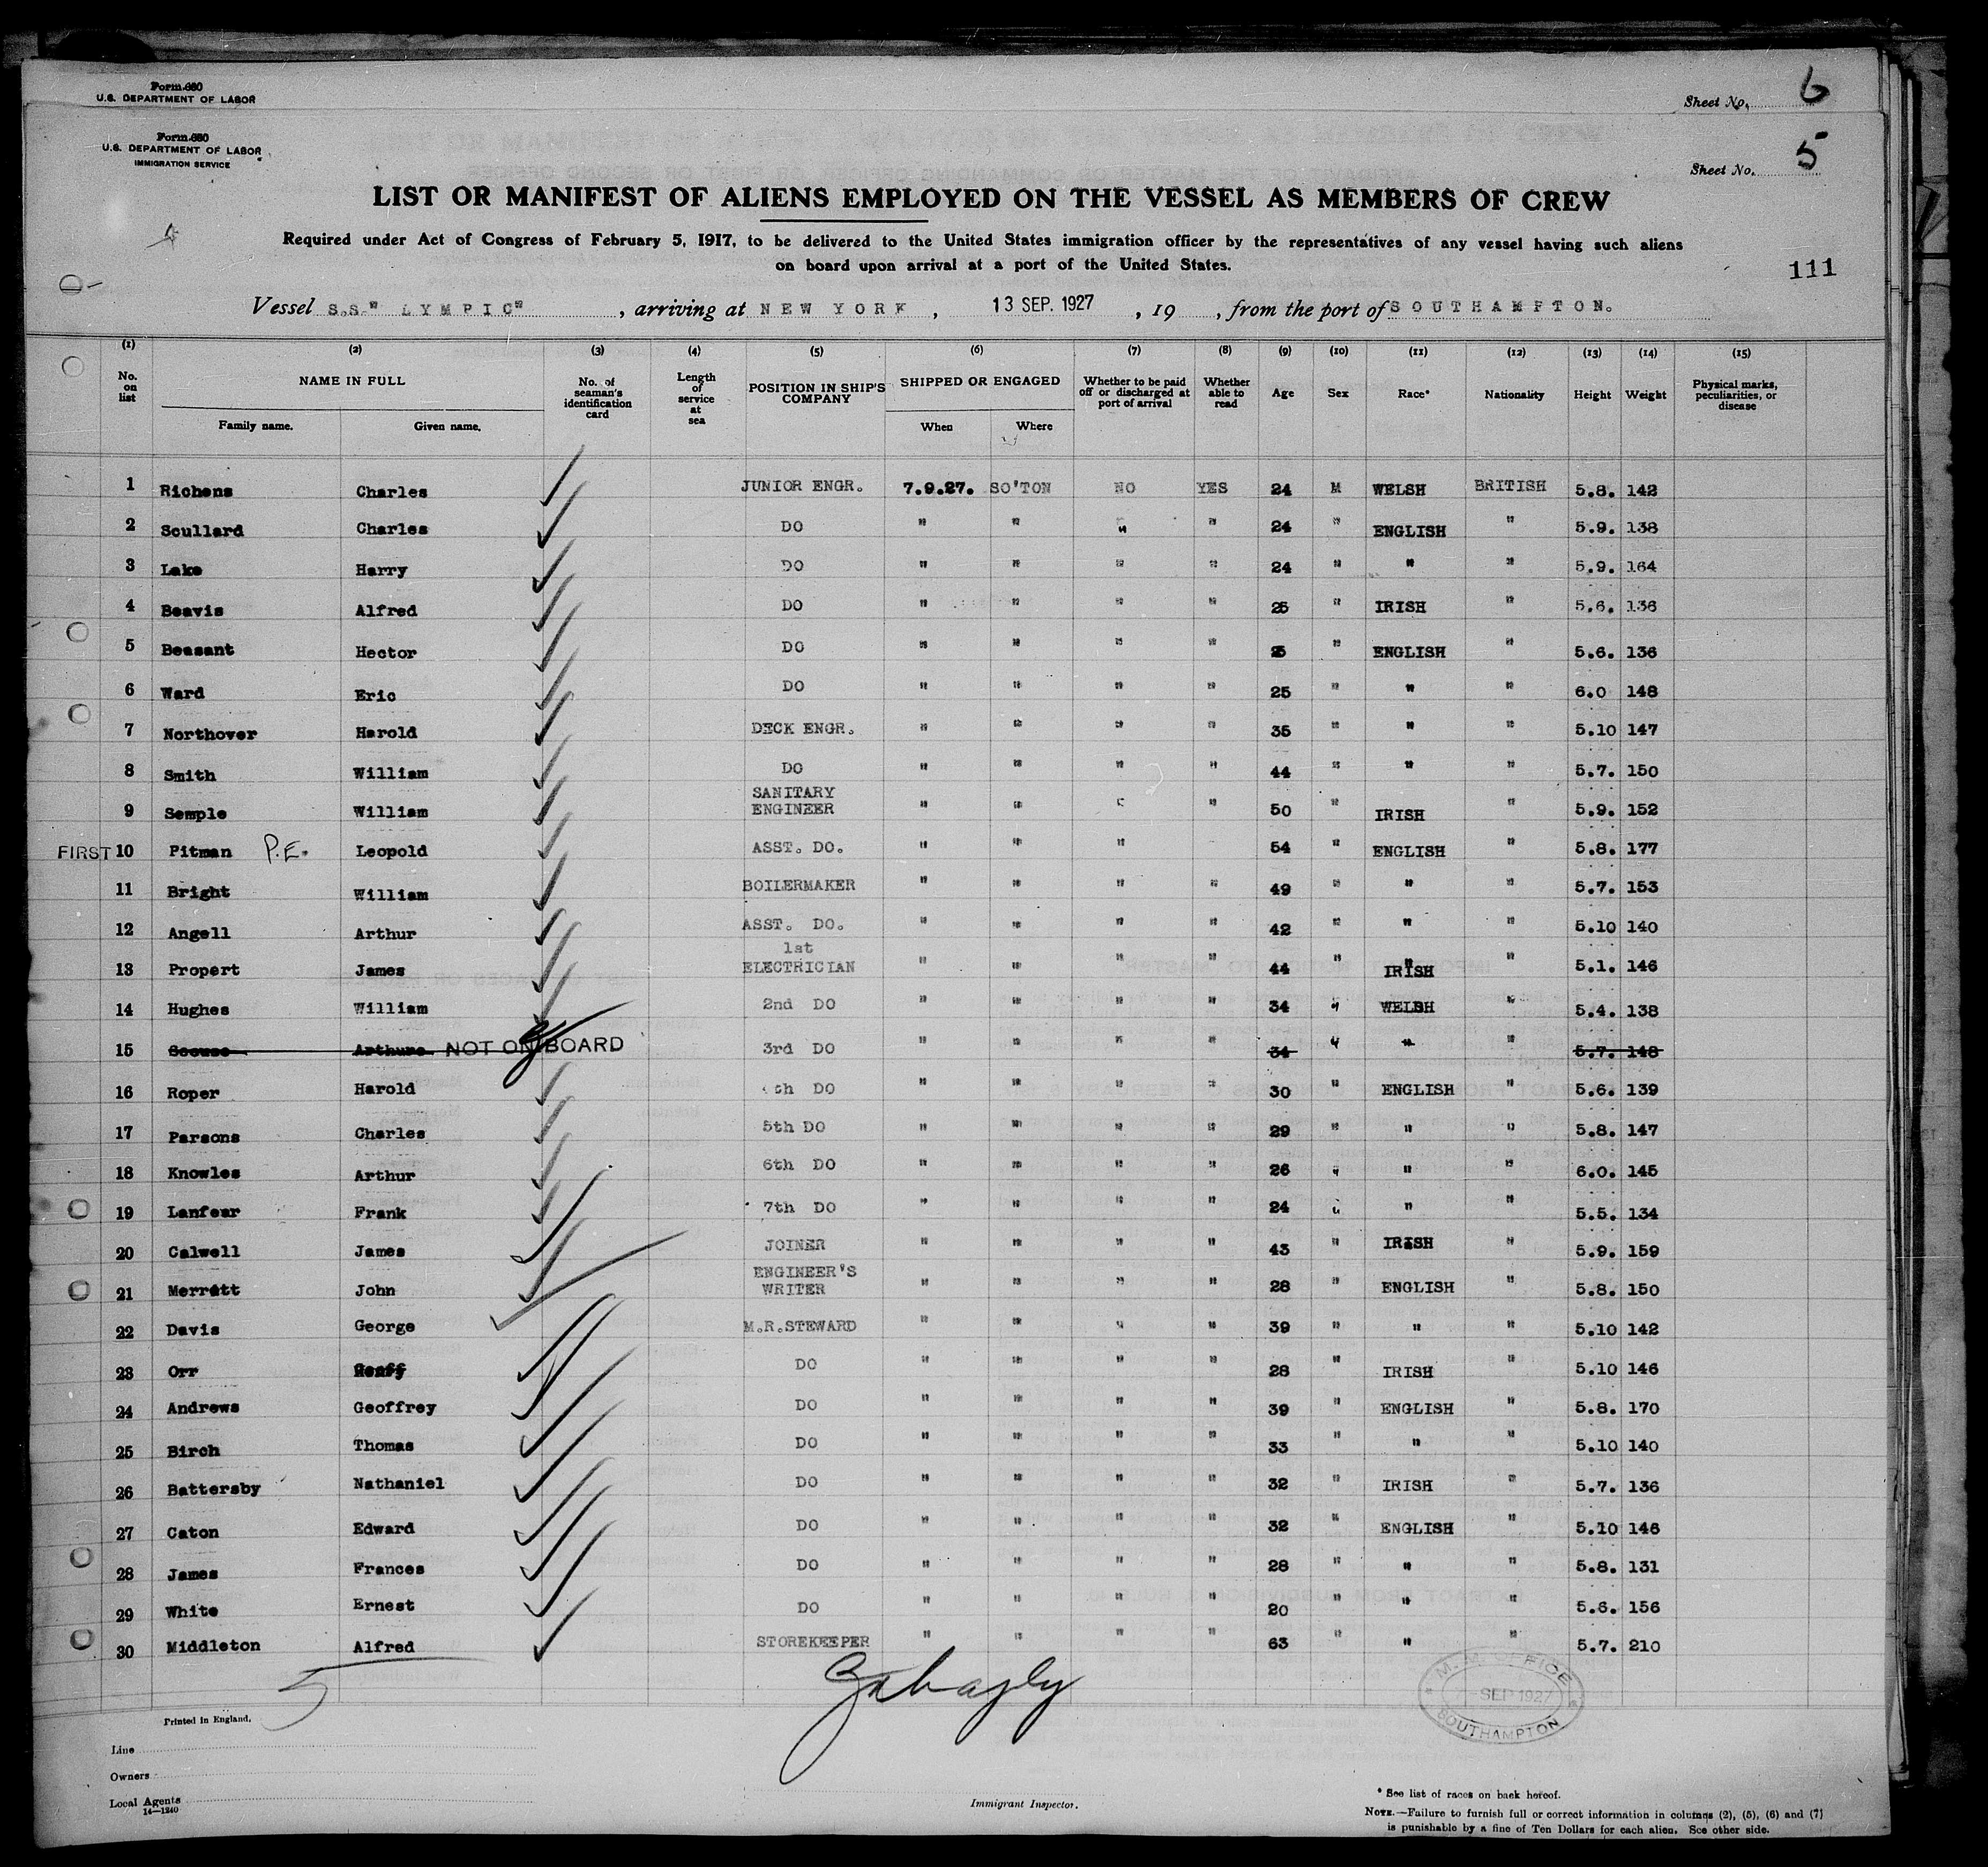 Form 680
U.S. DEPARTMENT OF LABOR
Sheet No. 6
Form 680
U.S. DEPARTMENT OF LABOR
IMMIGRATION SERVICE
Sheet No. 5
LIST OR MANIFEST OF ALIENS EMPLOYED ON THE VESSEL AS MEMBERS OF CREW
Required under Act of Congress of February 5, 1917, to be delivered to the United States immigration officer by the representatives of any vessel having such aliens
on board upon arrival at a port of the United States.
111
Vessel S.S." LYMPIC" , arriving at NEW YORK , 13 SEP. 1927 , 19 , from the port of SOUTHAMPTON.
(1) (2) (3) (4) (5) (6) (7) (8) (9) (10) (11) (12) (13) (14) (15)
No. on list NAME IN FULL Family name. Given name. No. of seaman's identification card Length of service at sea POSITION IN SHIP'S COMPANY SHIPPED OR ENGAGED When Where Whether to be paid off or discharged at port of arrival Whether able to read Age Sex Race* Nationality Height Weight Physical marks, peculiarities, or disease
1 Richens Charles JUNIOR ENGR. 7.9.27. SO'TON NO YES 24 M WELSH BRITISH 5.8. 142
2 Scullard Charles DO " " " " 24 " ENGLISH " 5.9. 138
3 Lake Harry DO " " " " 24 " " " 5.9. 164
4 Beavis Alfred DO " " " " 25 " IRISH " 5.6. 136
5 Beasant Hector DO " " " " " ENGLISH " 5.6. 136
6 Ward Eric DO " " " " 25 " " " 6.0 148
7 Northover Harold DECK ENGR. " " " " 35 " " " 5.10 147
8 Smith William DO " " " " 44 " " " 5.7. 150
9 Semple William SANITARY ENGINEER " " " " 50 " IRISH " 5.9. 152
FIRST 10 Pitman P.E. Leopold ASST. DO. " " " 54 " ENGLISH " 5.8. 177
11 Bright William BOILERMAKER " " " " 49 " " " 5.7. 153
12 Angell Arthur ASST. DO. " " " " 42 " " " 5.10 140
13 Propert James 1st ELECTRICIAN " " " " 44 " IRISH " 5.1. 146
14 Hughes William 2nd DO " " " " 34 " WELSH " 5.4. 138
15 Arthurs NOT ON BOARD 3rd DO " " " " 34 " " " 5.7. 148
16 Roper Harold th DO " " " " 30 " ENGLISH " 5.6. 139
17 Parsons Charles 5th DO " " " " 29 " " " 5.8. 147
18 Knowles Arthur 6th DO " " " " 26 " " " 6.0. 145
19 Lanfear Frank 7th DO " " " " 24 " " " 5.5. 134
20 Calwell James JOINER " " " " 43 " IRISH " 5.9. 159
21 Merrett John ENGINEER'S WRITER " " " " 28 " ENGLISH " 5.8. 150
22 Davis George M.R.STEWARD " " " " 39 " " " 5.10 142
23 Orr DO " " " " 28 " IRISH " 5.10 146
24 Andrews Geoffrey DO " " " " 39 " ENGLISH " 5.8. 170
25 Birch Thomas DO " " " " 33 " " " 5.10 140
26 Battersby Nathaniel DO " " " " 32 " IRISH " 5.7. 136
27 Caton Edward DO " " " " 32 " ENGLISH " 5.10 146
28 James Frances DO " " " " 28 " " " 5.8. 131
29 White Ernest DO " " " " 20 " " " 5.6. 156
30 Middleton Alfred STOREKEEPER " " " " 63 " " " 5.7. 210
5
M. M. OFFICE
SEP 1927
SOUTHAMPTON
Printed in England.
Line
Owners
Local Agents
14—1240
Immigrant Inspector.
* See list of races on back hereof.
NOTE.—Failure to furnish full or correct information in columns (2), (5), (6) and (7)
is punishable by a fine of Ten Dollars for each alien. See other side.